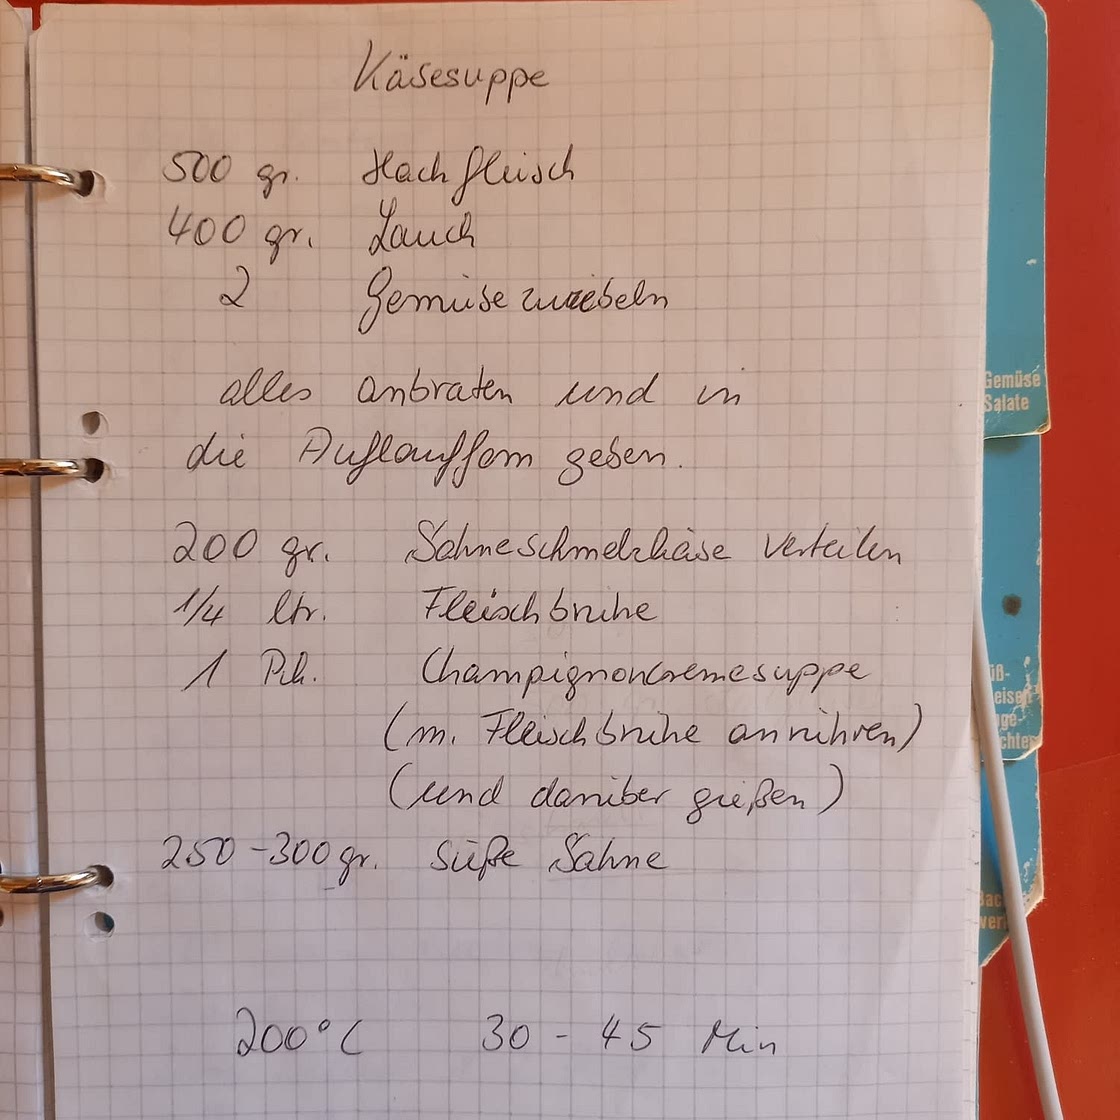 Käsesuppe
500 gr. Hackfleisch
400 gr. Lauch
2 Gemüsezwiebeln
alles anbraten und in
die Auflaufform geben.
200 gr. Sahneschmelzkäse verteilen
1/4 ltr. Fleischbrühe
1 Pck. Champignoncremesuppe
(m. Fleischbrühe anrühren)
(und darüber gießen)
250-300 gr. süße Sahne
200°C 30 - 45 Min
Gemüse
Salate